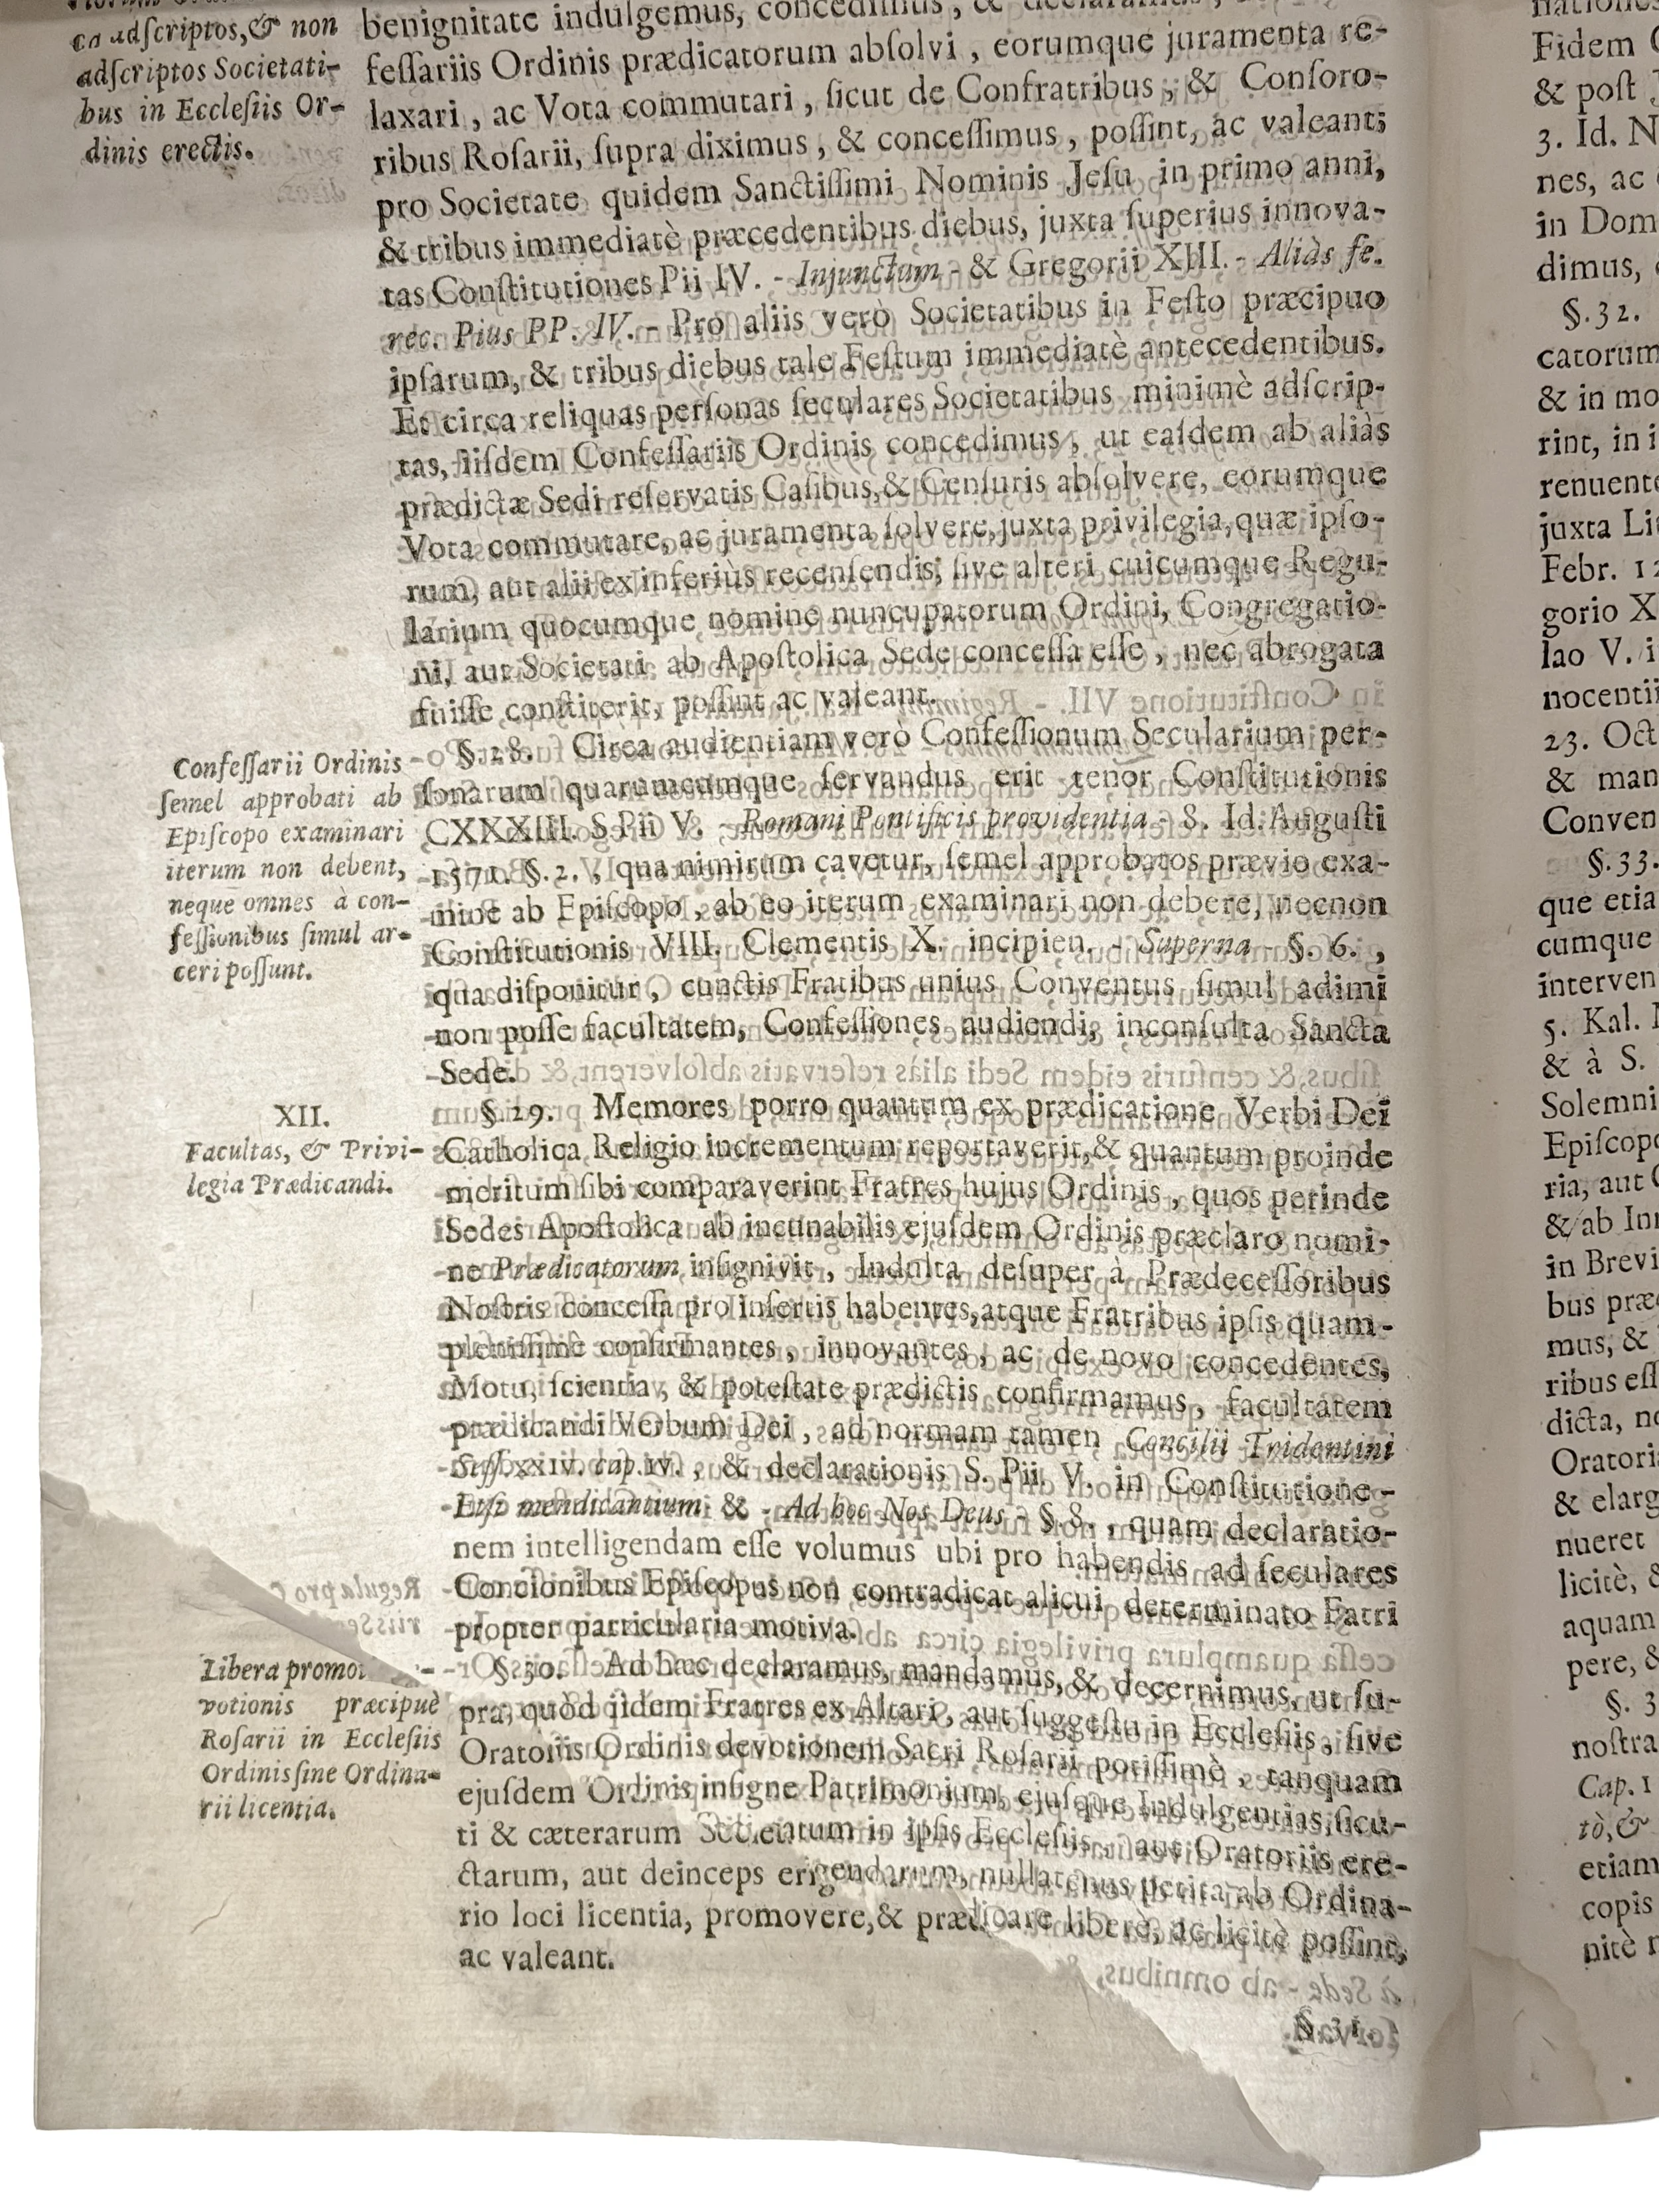 adſcriptos, & non
adſcriptos Societati-
bus in Eccleſiis Or-
dinis erectis.
benignitate indulgemus, concedimus, & declaramus,
feſſariis Ordinis prædicatorum abſolvi, eorumque juramenta re-
laxari, ac Vota commutari, ſicut de Confratribus, & Conſoro-
ribus Roſarii, ſupra diximus, & conceſſimus, poſſint, ac valeant;
pro Societate quidem Sanctiſſimi Nominis Jeſu in primo anni,
& tribus immediatè præcedentibus diebus, juxta ſuperius innova-
tas Conſtitutiones Pii IV. - Injunctum - & Gregorii XIII. - Aliàs fe.
rec. Pius PP. IV. - Pro aliis verò Societatibus in Feſto præcipuo
ipſarum, & tribus diebus tale Feſtum immediatè antecedentibus.
Et circa reliquas perſonas ſeculares Societatibus minimè adſcrip-
tas, iiſdem Confeſſariis Ordinis concedimus, ut eaſdem ab aliàs
prædictæ Sedi reſervatis Caſibus, & Cenſuris abſolvere, eorumque
Vota commutare, ac juramenta ſolvere, juxta privilegia, quæ ipſo-
rum, aut alii ex inferiùs recenſendis, ſive alteri cuicumque Regu-
larium quocumque nomine nuncupatorum Ordini, Congregatio-
ni, aut Societati ab Apoſtolica Sede conceſſa eſſe, nec abrogata
fuiſſe conſtiterit, poſſint ac valeant.
Confeſſarii Ordinis
ſemel approbati ab
Epiſcopo examinari
iterum non debent,
neque omnes à con-
feſſionibus ſimul ar-
ceri poſſunt.
§. 28. Circa audientiam verò Confeſſionum Secularium per-
ſonarum quarumcumque ſervandus erit tenor Conſtitutionis
CXXXIII. S. Pii V. - Romani Pontificis providentia - 8. Id. Auguſti
1571. §. 2., qua nimirum cavetur, ſemel approbatos prævio exa-
mine ab Epiſcopo, ab eo iterum examinari non debere, necnon
Conſtitutionis VIII. Clementis X. incipien. - Superna - §. 6.,
qua diſponitur, cunctis Fratibus unius Conventus ſimul adimi
non poſſe facultatem, Confeſſiones audiendi, inconſulta Sancta
Sede.
XII.
Facultas, & Privi-
legia Prædicandi.
§. 29. Memores porro quantum ex prædicatione Verbi Dei
Catholica Religio incrementum reportaverit, & quantum proinde
meritum ſibi comparaverint Fratres hujus Ordinis, quos perinde
Sedes Apoſtolica ab incunabilis ejuſdem Ordinis præclaro nomi-
ne Prædicatorum inſignivit, Indulta deſuper à Prædeceſſoribus
Noſtris conceſſa pro inſertis habentes, atque Fratribus ipſis quam-
pleniſſimè confirmantes, innovantes, ac de novo concedentes,
Motu, ſcientia, & poteſtate prædictis confirmamus, facultatem
prædicandi Verbum Dei, ad normam tamen Concilii Tridentini
Seſſ. xxiv. cap. iv., & declarationis S. Pii V. in Conſtitutione -
Etſi mendicantium & - Ad hoc Nos Deus - §. 8., quam declaratio-
nem intelligendam eſſe volumus ubi pro habendis ad ſeculares
Concionibus Epiſcopus non contradicat alicui determinato Fatri
propter particularia motiva.
Libera promo
votionis præcipuè
Roſarii in Eccleſiis
Ordinis ſine Ordina-
rii licentia.
§. 30. Ad hæc declaramus, mandamus, & decernimus, ut ſu-
pra, quòd iidem Fratres ex Altari, aut ſuggeſtu in Eccleſiis, ſive
Oratoriis Ordinis devotionem Sacri Roſarii potiſſimè, tanquam
ejuſdem Ordinis inſigne Patrimonium, ejuſque Indulgentias, ſicu-
ti & cæterarum Societatum in ipſis Eccleſiis, aut Oratoriis ere-
ctarum, aut deinceps erigendarum, nullatenus petita ab Ordina-
rio loci licentia, promovere, & prædicare liberè, ac licitè poſſint,
ac valeant.
§. 31.
Fidem
& poſt
3. Id. N
nes, ac
in Dom
dimus,
§. 32.
catorum
& in mo
rint, in i
renuente
juxta Lit
Febr. 12
gorio X
lao V. i
nocentii
23. Oct
& man
Conven
§. 33.
que etia
cumque
interven
5. Kal.
& à S.
Solemni
Epiſcop
ria, aut
& ab Inn
in Brevi
bus præ
mus, &
ribus eſſ
dicta, n
Oratori
& elarg
nueret
licitè, &
aquam
pere, &
§. 3
noſtra
Cap. 1
tò, &
etiam
copis
nitè